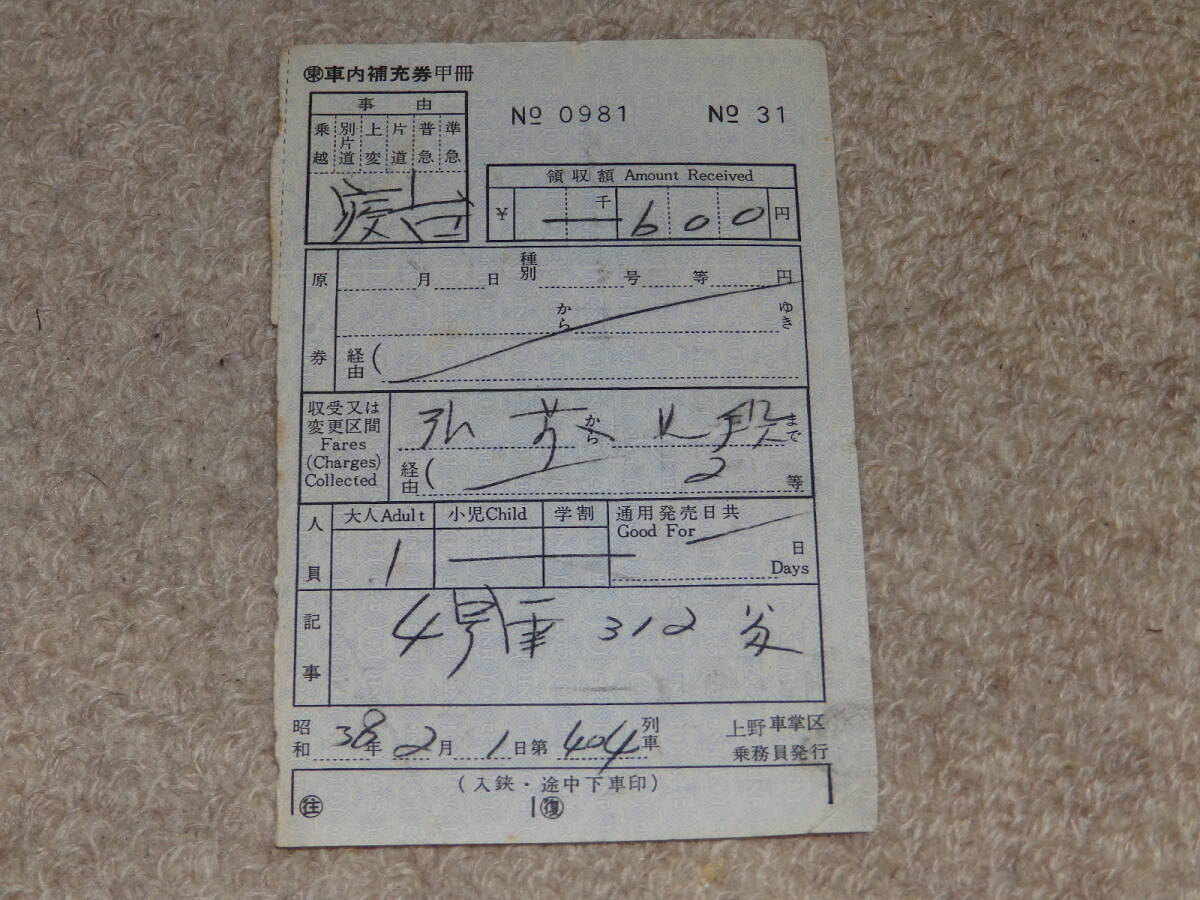 ㊍車内補充券甲冊
No 0981 No 31
事由
乗越 別片道 上変 片道 普急 準急
寝台
領収額 Amount Received
¥ 千 600 円
原券
月 日 種別 号 等 円
から ゆき
経由(
収受又は変更区間
Fares
(Charges)
Collected
弘前から 上段まで
経由( 2等
人員
大人Adult 小児Child 学割
1
通用発売日共
Good For
日
Days
記事
4号車 312
昭和38年2月1日第404列車
上野車掌区
乗務員発行
(入鋏・途中下車印)
㊟往 復